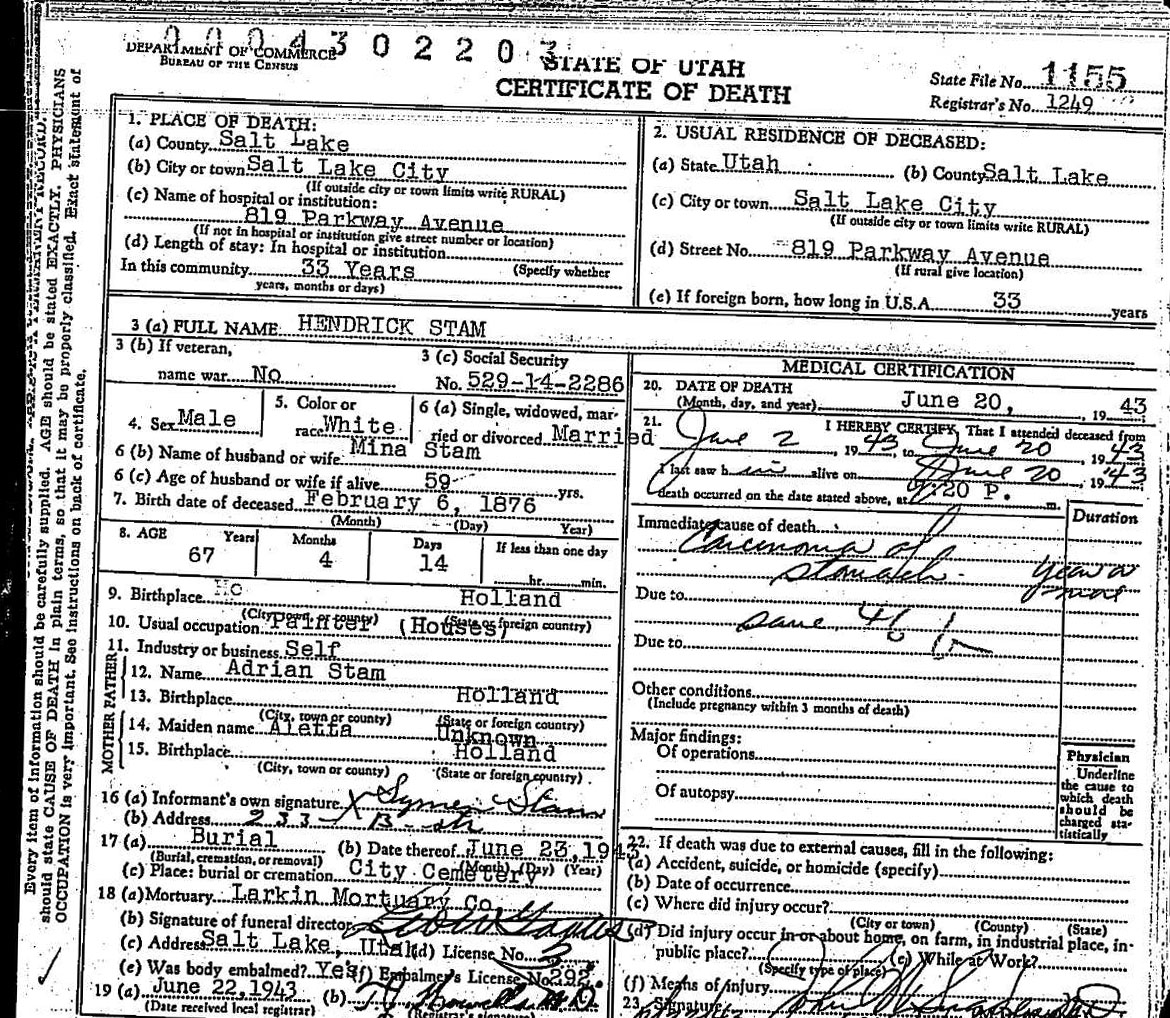 0004302203
DEPARTMENT OF COMMERCE
BUREAU OF THE CENSUS
STATE OF UTAH
CERTIFICATE OF DEATH
State File No. 1155
Registrar's No. 1249
Every item of information should be carefully supplied. AGE should be stated EXACTLY. PHYSICIANS
should state CAUSE OF DEATH in plain terms, so that it may be properly classified. Exact statement of
OCCUPATION is very important. See instructions on back of certificate.
1. PLACE OF DEATH:
(a) County Salt Lake
(b) City or town Salt Lake City
(If outside city or town limits write RURAL)
(c) Name of hospital or institution:
819 Parkway Avenue
(If not in hospital or institution give street number or location)
(d) Length of stay: In hospital or institution
In this community 33 Years (Specify whether
years, months or days)
2. USUAL RESIDENCE OF DECEASED:
(a) State Utah (b) County Salt Lake
(c) City or town Salt Lake City
(If outside city or town limits write RURAL)
(d) Street No. 819 Parkway Avenue
(If rural give location)
(e) If foreign born, how long in U.S.A. 33 years
3 (a) FULL NAME HENDRICK STAM
3 (b) If veteran,
name war No
3 (c) Social Security
No. 529-14-2286
4. Sex Male
5. Color or
race White
6 (a) Single, widowed, mar-
ried or divorced Married
6 (b) Name of husband or wife Mina Stam
6 (c) Age of husband or wife if alive 59 yrs.
7. Birth date of deceased February 6, 1876
(Month) (Day) Year)
8. AGE Years Months Days If less than one day
67 4 14 hr. min.
9. Birthplace Ho Holland
(City, town or county) (State or foreign country)
10. Usual occupation Painter (Houses)
11. Industry or business Self
FATHER
12. Name Adrian Stam
13. Birthplace Holland
(City, town or county) (State or foreign country)
MOTHER
14. Maiden name Aletta Unknown
15. Birthplace Holland
(City, town or county) (State or foreign country)
16 (a) Informant's own signature X Symen Stam
(b) Address 233 - B - str
17 (a) Burial (b) Date thereof June 23, 1943
(Burial, cremation, or removal) (Month) (Day) (Year)
(c) Place: burial or cremation City Cemetery
18 (a) Mortuary Larkin Mortuary Co.
(b) Signature of funeral director
(c) Address Salt Lake, Utah (d) License No. 3
(e) Was body embalmed? Yes (f) Embalmer's License No. 292
19 (a) June 22, 1943 (b)
(Date received local registrar) (Registrar's signature)
MEDICAL CERTIFICATION
20. DATE OF DEATH
(Month, day, and year) June 20, , 19 43
21. I HEREBY CERTIFY, That I attended deceased from
June 2 , 19 43, to June 20 , 19 43
I last saw h im alive on June 20 , 19 43
death occurred on the date stated above, at :20 P. m.
Duration
Immediate cause of death
Carcinoma of
stomach year or
more
Due to
same, 46 b
Due to
Other conditions
(Include pregnancy within 3 months of death)
Major findings:
Of operations
Of autopsy
Physician
Underline
the cause to
which death
should be
charged sta-
tistically
22. If death was due to external causes, fill in the following:
(a) Accident, suicide, or homicide (specify)
(b) Date of occurrence
(c) Where did injury occur?
(City or town) (County) (State)
(d) Did injury occur in or about home, on farm, in industrial place, in-
public place? (e) While at Work?
(Specify type of place)
(f) Means of injury
23. Signature